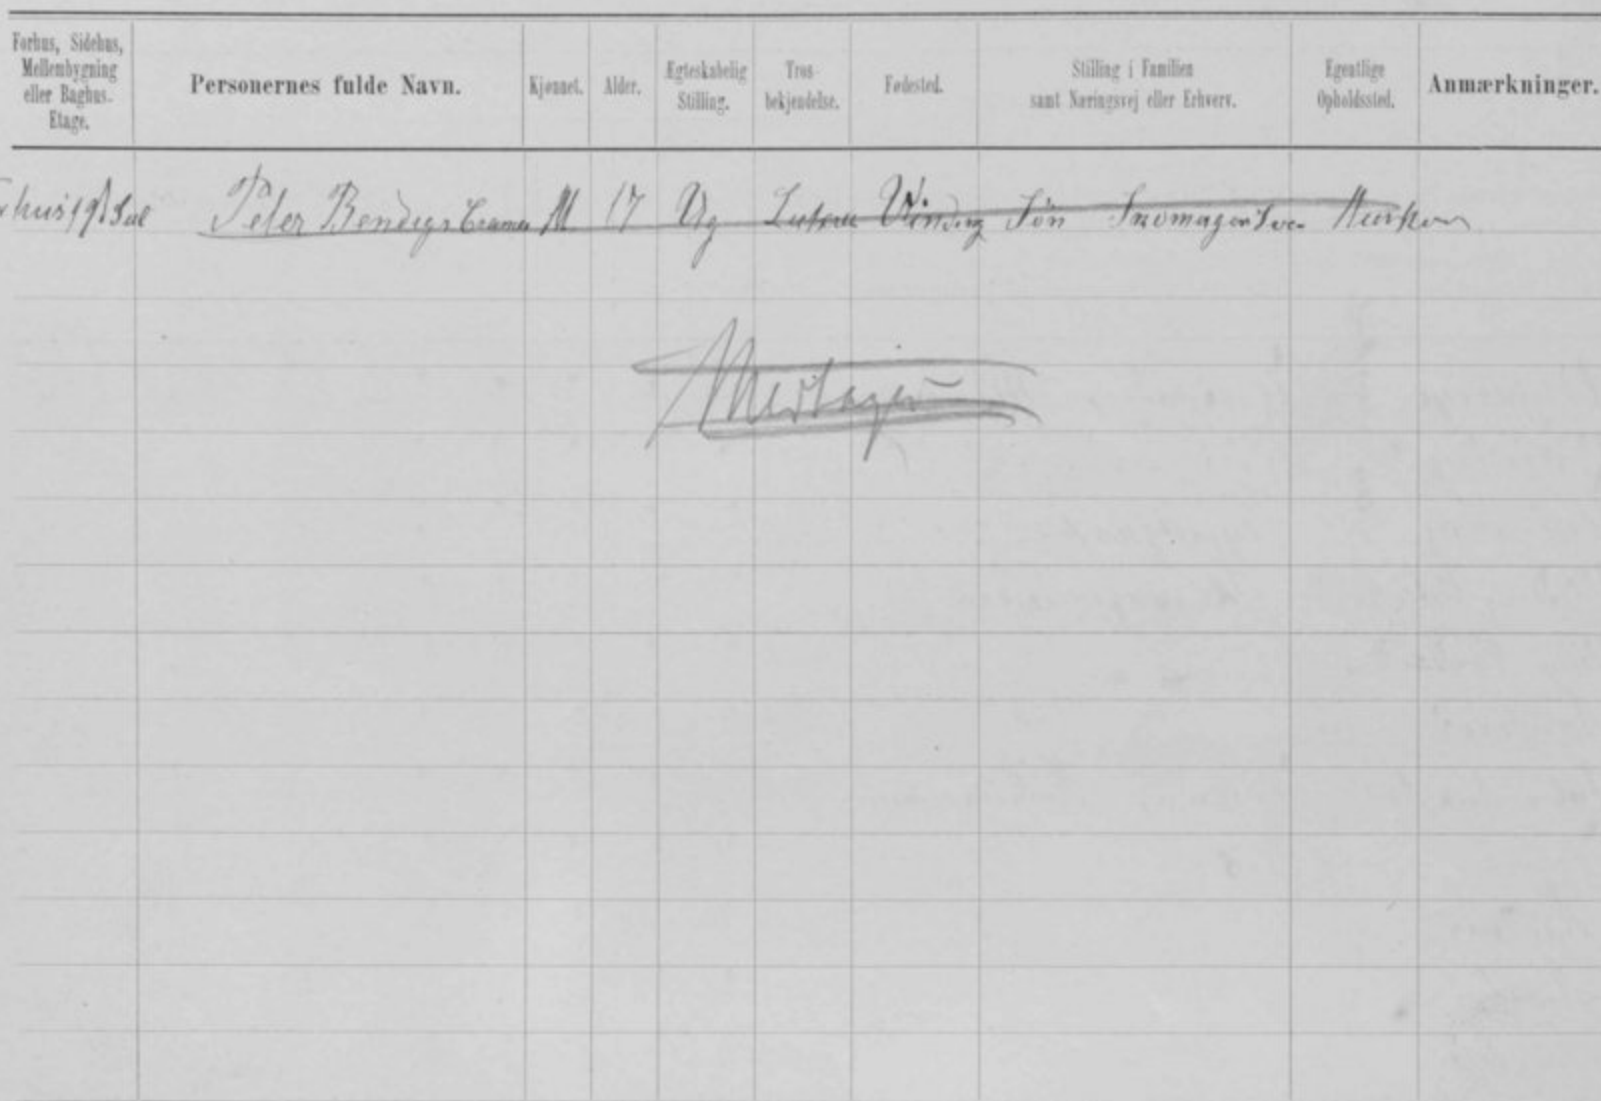 Forhus, Sidehus, Mellembygning eller Baghus. Etage.
Personernes fulde Navn.
Kjønnet.
Alder.
Ægteskabelig Stilling.
Tros-bekjendelse.
Fødested.
Stilling i Familien samt Næringsvej eller Erhverv.
Egentlige Opholdssted.
Anmærkninger.
Sal Peter Cramer M 17 Ug Luthera Vinding Søn